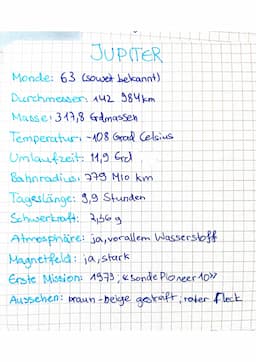 JUPITER
Monde: 63 (soweit bekannt)
Durchmesser: 142 984 km
Masse: 317,8 Erdmassen
Temperatur: -108 Grad Celsius
Umlaufzeit: 11,9
Bahnradius: 779 Mio km
Tageslänge: 9,9 Stunden
Schwerkraft: 2,36 g
Atmosphäre: ja, vor allem Wasserstoff
Magnetfeld: ja, stark
Erste Mission: 1973, «Sonde Pioneer 10»
Aussehen: braun-beige gestreift, roter Fleck